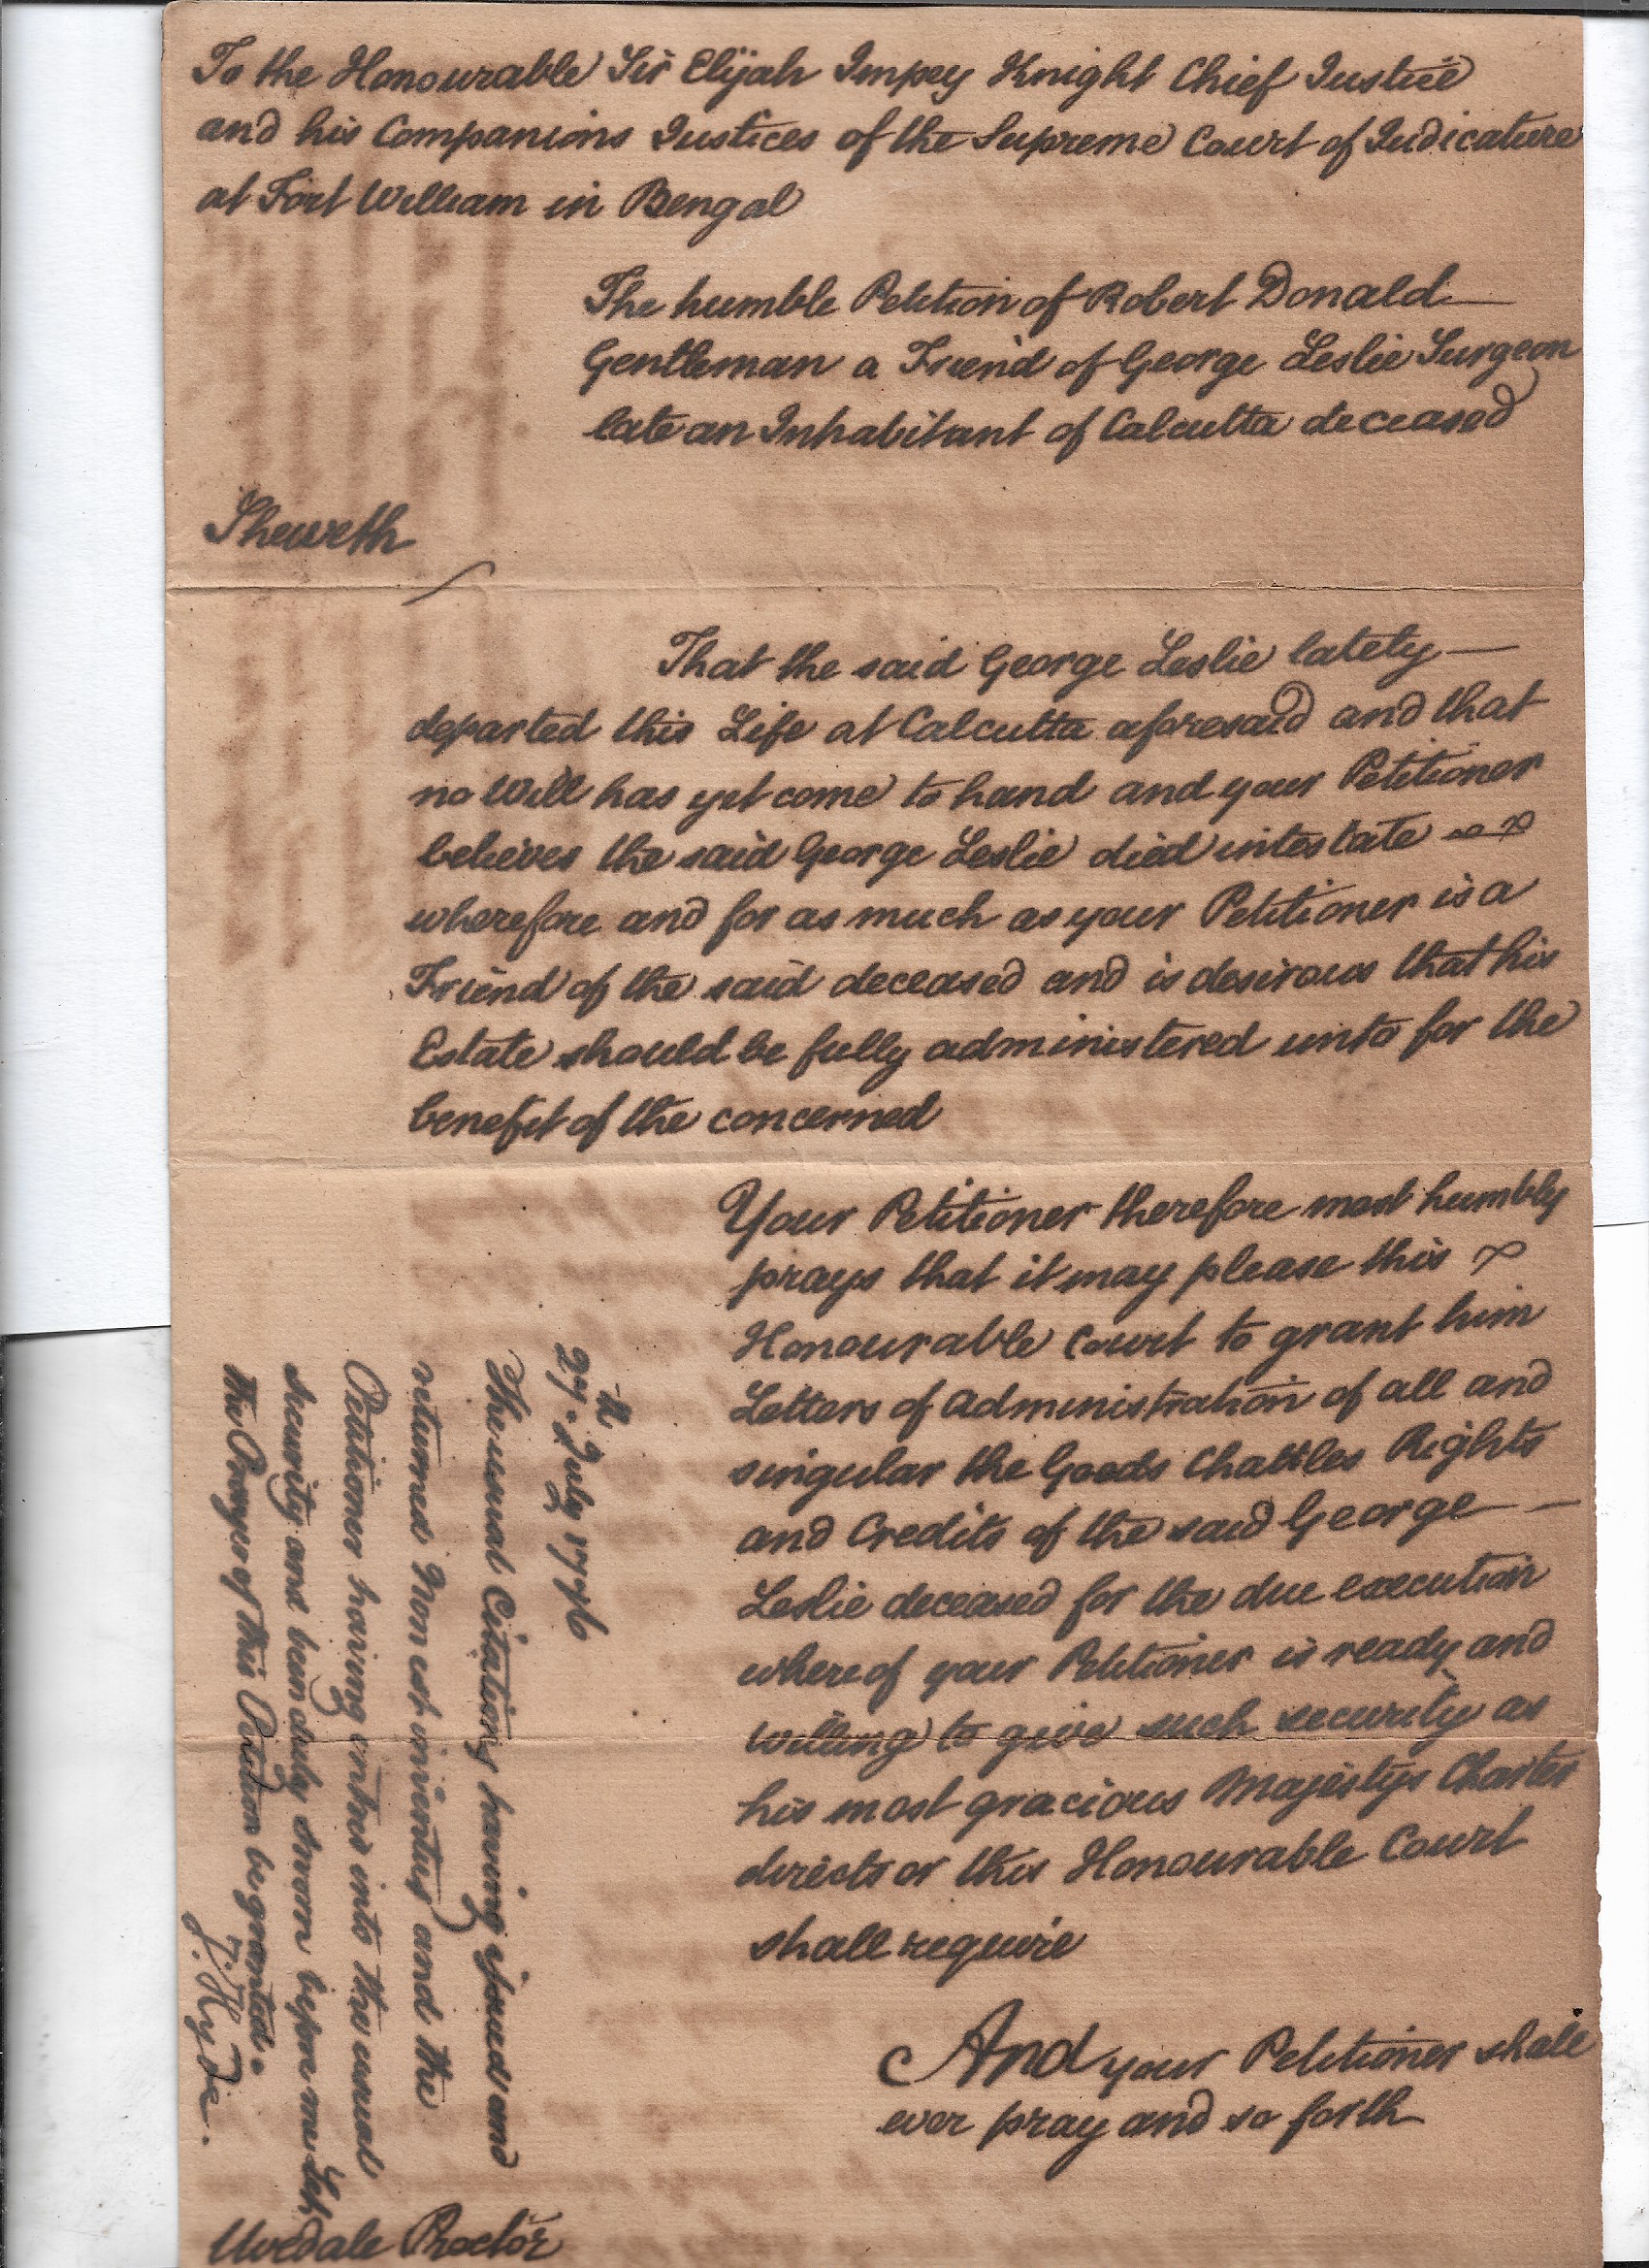 To the Honourable Sir Elijah Impey Knight Chief Justice
and his Companions Justices of the Supreme Court of Judicature
at Fort William in Bengal
The humble Petition of Robert Donald
Gentleman a Friend of George Leslie Surgeon
late an Inhabitant of Calcutta deceased
Sheweth
That the said George Leslie lately
departed this Life at Calcutta aforesaid and that
no Will has yet come to hand and your Petitioner
believes the said George Leslie died intestate
wherefore and for as much as your Petitioner is a
Friend of the said deceased and is desirous that his
Estate should be fully administered unto for the
benefit of the concerned
Your Petitioner therefore most humbly
prays that it may please this
Honourable Court to grant him
Letters of Administration of all and
singular the Goods Chattles Rights
and Credits of the said George
Leslie deceased for the due execution
whereof your Petitioner is ready and
willing to give such security as
his most gracious Majestys Charter
directs or this Honourable Court
shall require
And your Petitioner shall
ever pray and so forth
27th July 1776
The usual Citations having issued and
returned Non est inventus and the
Petitioner having entred into the usual
Security and been duly sworn before me Let
the Prayer of this Petition be granted.
J. Hyde.
Uvedale Proctor